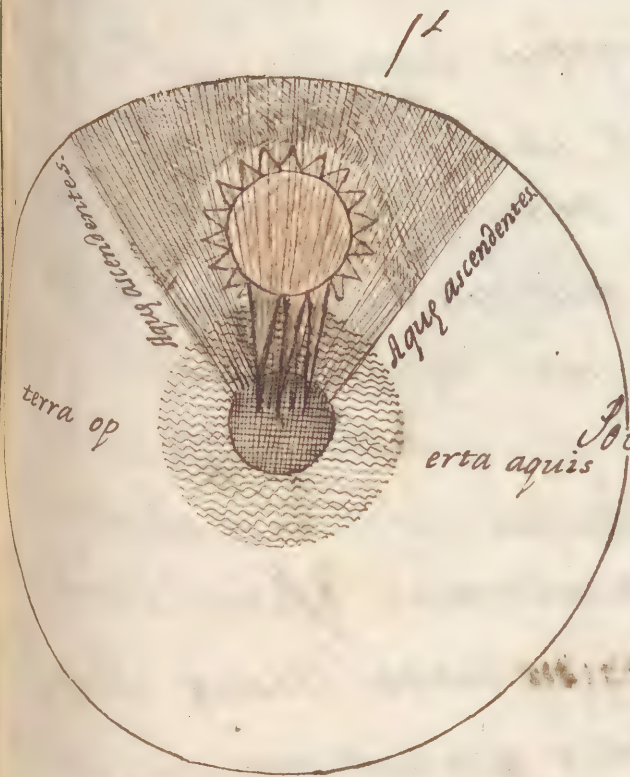 Aquę ascendentes.
Aquę ascendentes
terra op
erta aquis